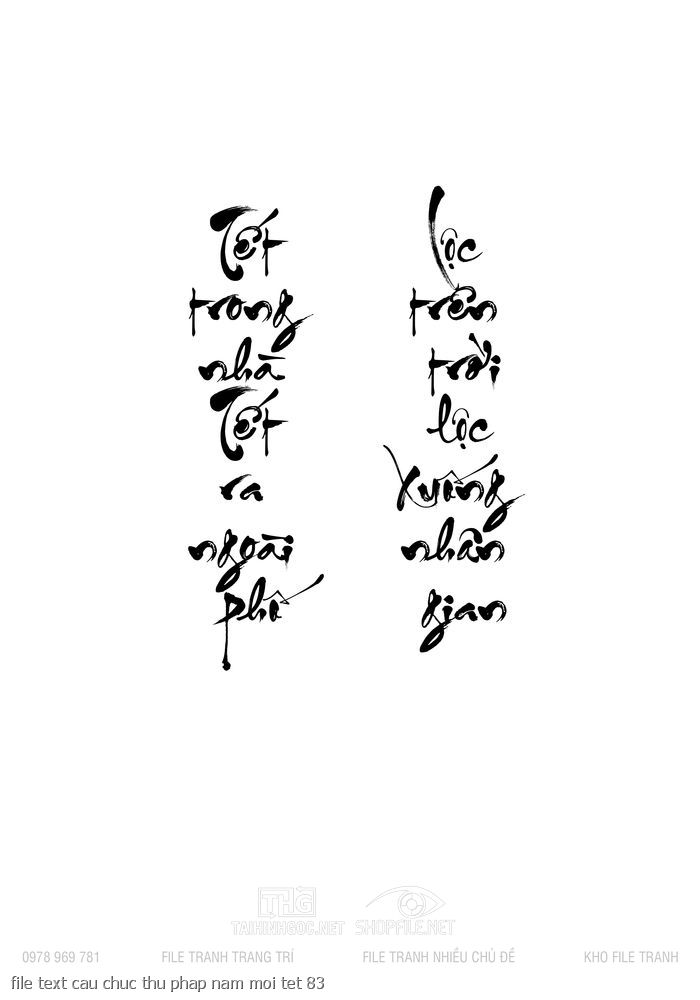 Tết
trong
nhà
Tết
ra
ngoài
phố
Lộc
trên
trời
lộc
xuống
nhân
gian
THG
TAIHINHGOC.NET SHOPFILE.NET
0978 969 781 FILE TRANH TRANG TRÍ FILE TRANH NHIỀU CHỦ ĐỀ KHO FILE TRANH
file text cau chuc thu phap nam moi tet 83